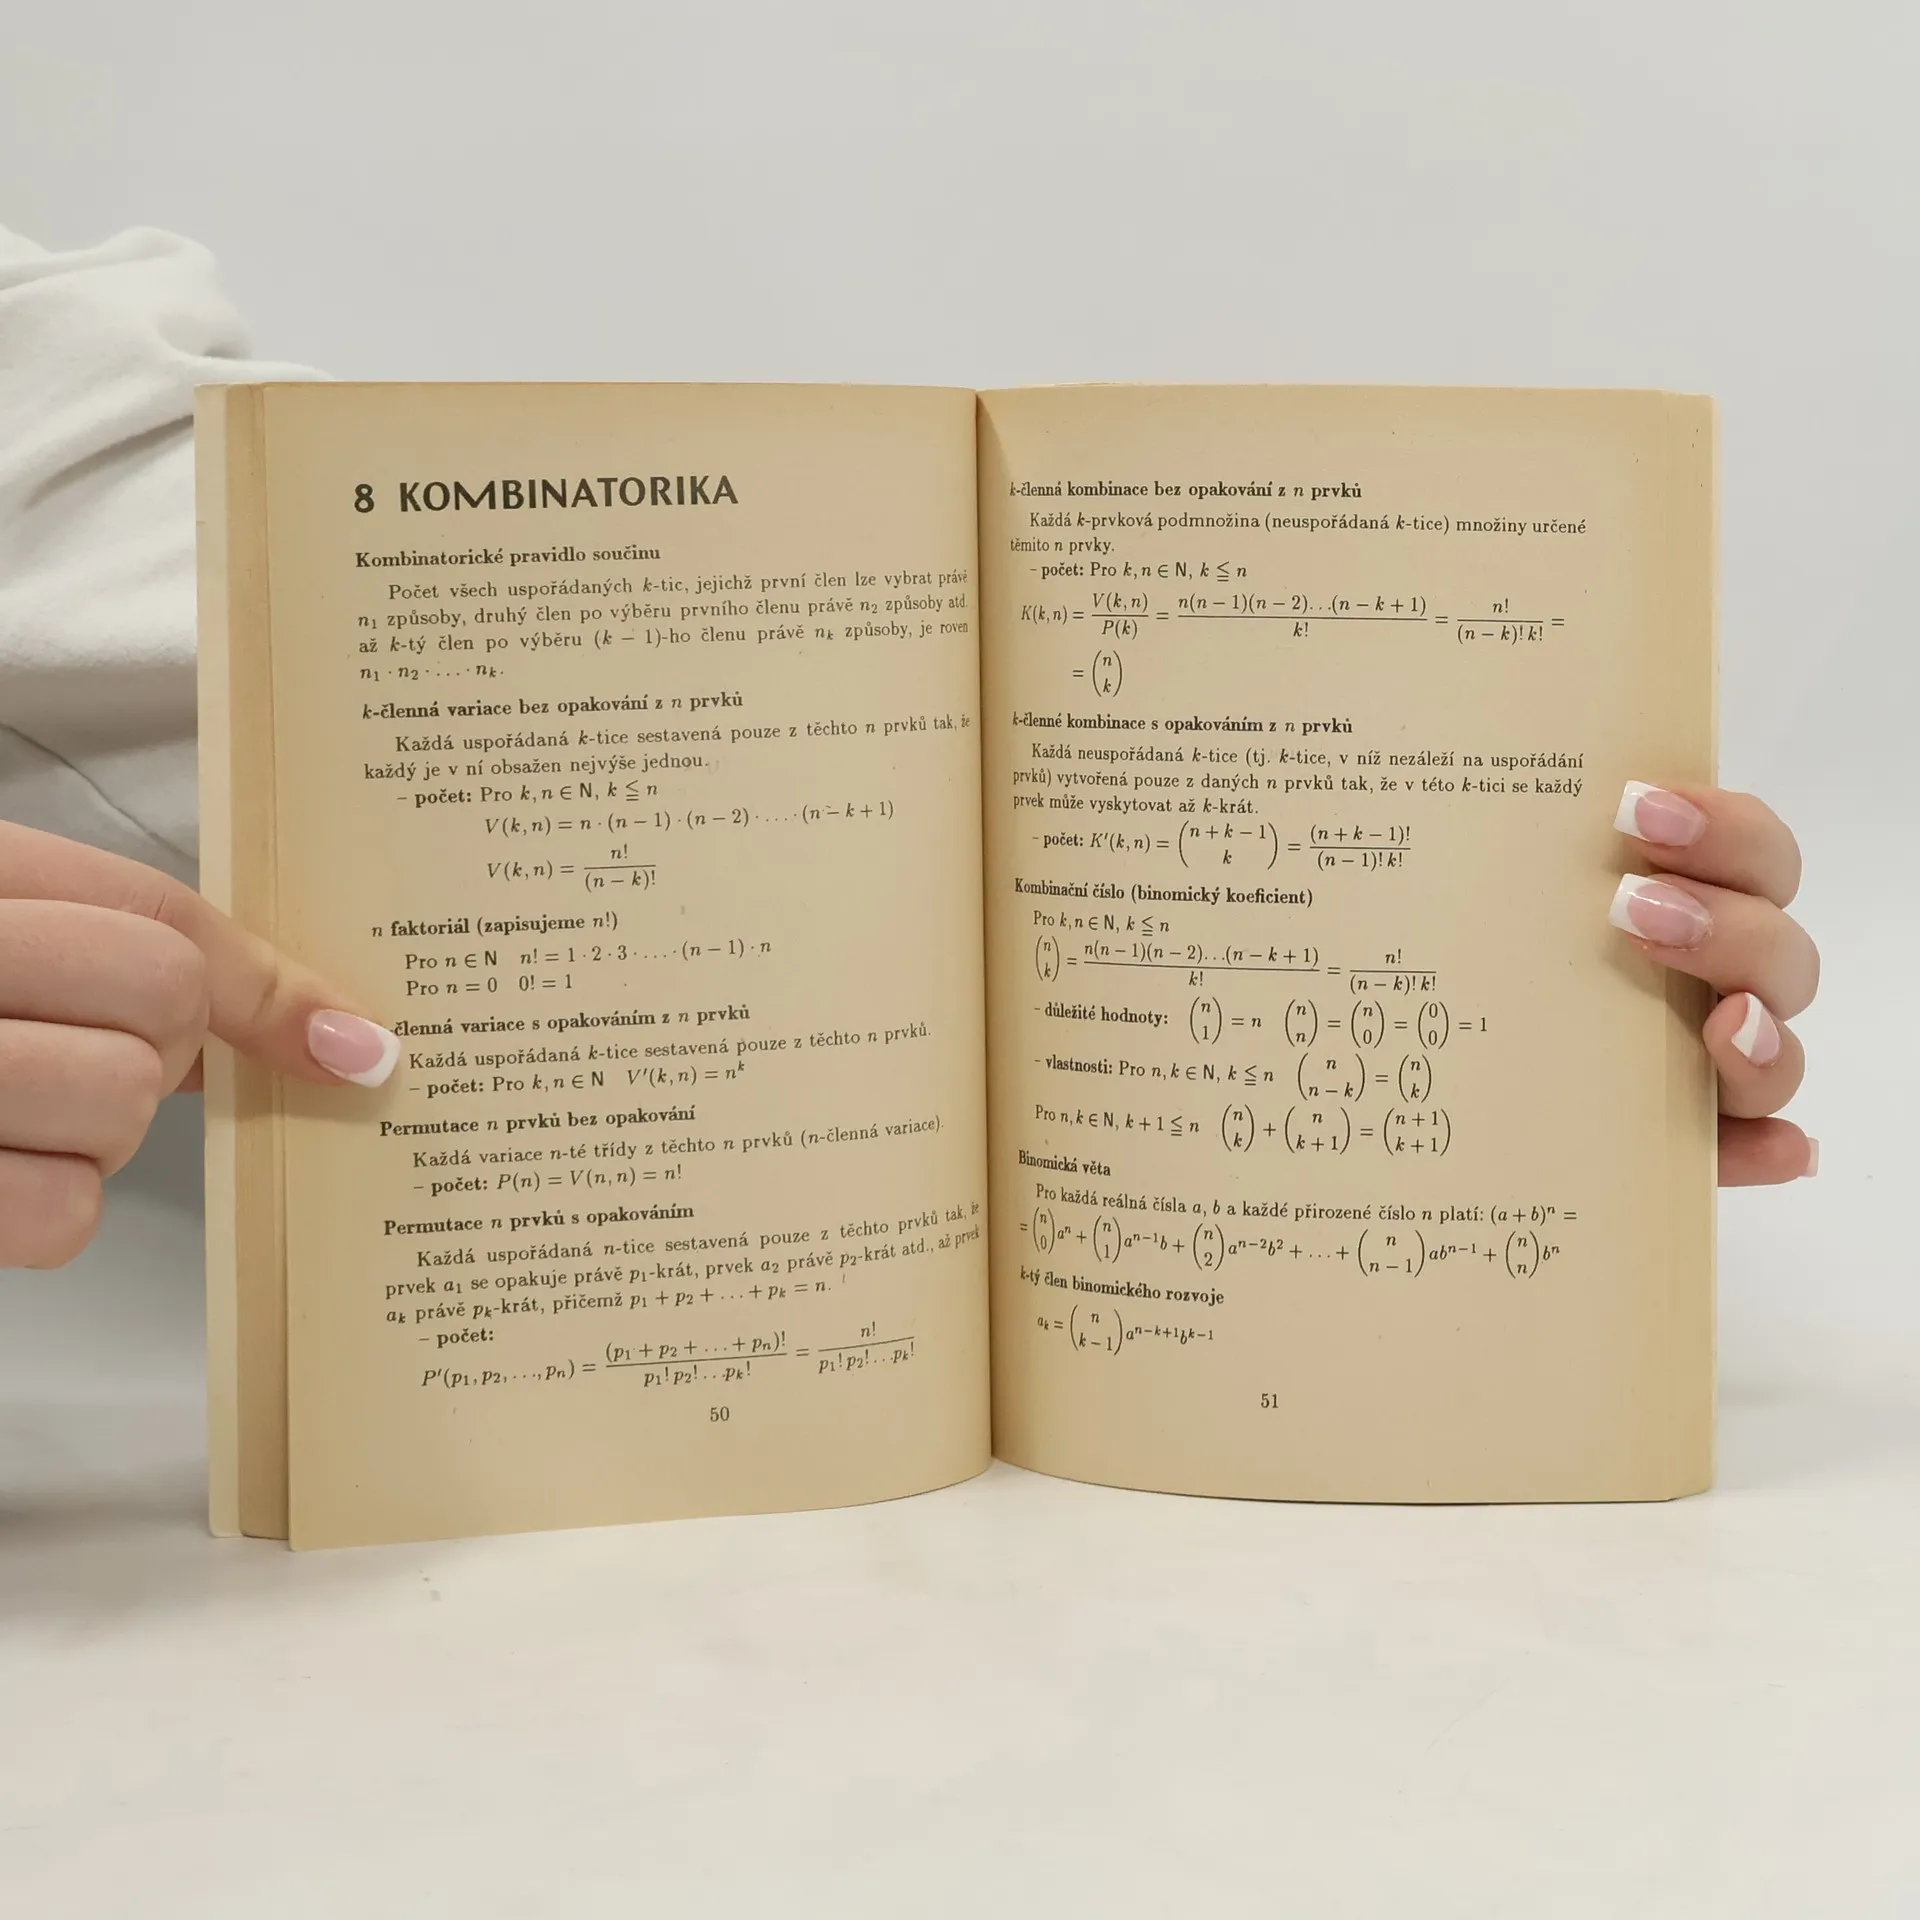 8 KOMBINATORIKA
Kombinatorické pravidlo součinu
Počet všech uspořádaných k-tic, jejichž první člen lze vybrat právě
n₁ způsoby, druhý člen po výběru prvního členu právě n₂ způsoby atd.
až k-tý člen po výběru (k − 1)-ho členu právě nₖ způsoby, je roven
n₁ · n₂ · . . . · nₖ.
k-členná variace bez opakování z n prvků
Každá uspořádaná k-tice sestavená pouze z těchto n prvků tak, že
každý je v ní obsažen nejvýše jednou.
– počet: Pro k, n ∈ N, k ≦ n
V(k, n) = n · (n − 1) · (n − 2) · . . . . · (n − k + 1)
V(k, n) = n! / (n − k)!
n faktoriál (zapisujeme n!)
Pro n ∈ N n! = 1 · 2 · 3 · . . . . · (n − 1) · n
Pro n = 0 0! = 1
-členná variace s opakováním z n prvků
Každá uspořádaná k-tice sestavená pouze z těchto n prvků.
– počet: Pro k, n ∈ N V′(k, n) = nᵏ
Permutace n prvků bez opakování
Každá variace n-té třídy z těchto n prvků (n-členná variace).
– počet: P(n) = V(n, n) = n!
Permutace n prvků s opakováním
Každá uspořádaná n-tice sestavená pouze z těchto prvků tak, že
prvek a₁ se opakuje právě p₁-krát, prvek a₂ právě p₂-krát atd., až prvek
aₖ právě pₖ-krát, přičemž p₁ + p₂ + . . . + pₖ = n.
– počet:
P′(p₁, p₂, . . ., pₙ) = (p₁ + p₂ + . . . + pₙ)! / p₁! p₂! . . . pₖ! = n! / p₁! p₂! . . . pₖ!
50
k-členná kombinace bez opakování z n prvků
Každá k-prvková podmnožina (neuspořádaná k-tice) množiny určené
těmito n prvky.
– počet: Pro k, n ∈ N, k ≦ n
K(k, n) = V(k, n) / P(k) = n(n − 1)(n − 2). . .(n − k + 1) / k! = n! / (n − k)! k! =
= (n k)
k-členné kombinace s opakováním z n prvků
Každá neuspořádaná k-tice (tj. k-tice, v níž nezáleží na uspořádání
prvků) vytvořená pouze z daných n prvků tak, že v této k-tici se každý
prvek může vyskytovat až k-krát.
– počet: K′(k, n) = (n + k − 1 k) = (n + k − 1)! / (n − 1)! k!
Kombinační číslo (binomický koeficient)
Pro k, n ∈ N, k ≦ n
(n k) = n(n − 1)(n − 2). . .(n − k + 1) / k! = n! / (n − k)! k!
– důležité hodnoty: (n 1) = n (n n) = (n 0) = (0 0) = 1
– vlastnosti: Pro n, k ∈ N, k ≦ n (n n − k) = (n k)
Pro n, k ∈ N, k + 1 ≦ n (n k) + (n k + 1) = (n + 1 k + 1)
Binomická věta
Pro každá reálná čísla a, b a každé přirozené číslo n platí: (a + b)ⁿ =
= (n 0)aⁿ + (n 1)aⁿ⁻¹b + (n 2)aⁿ⁻²b² + . . . + (n n − 1)abⁿ⁻¹ + (n n)bⁿ
k-tý člen binomického rozvoje
aₖ = (n k − 1)aⁿ⁻ᵏ⁺¹bᵏ⁻¹
51